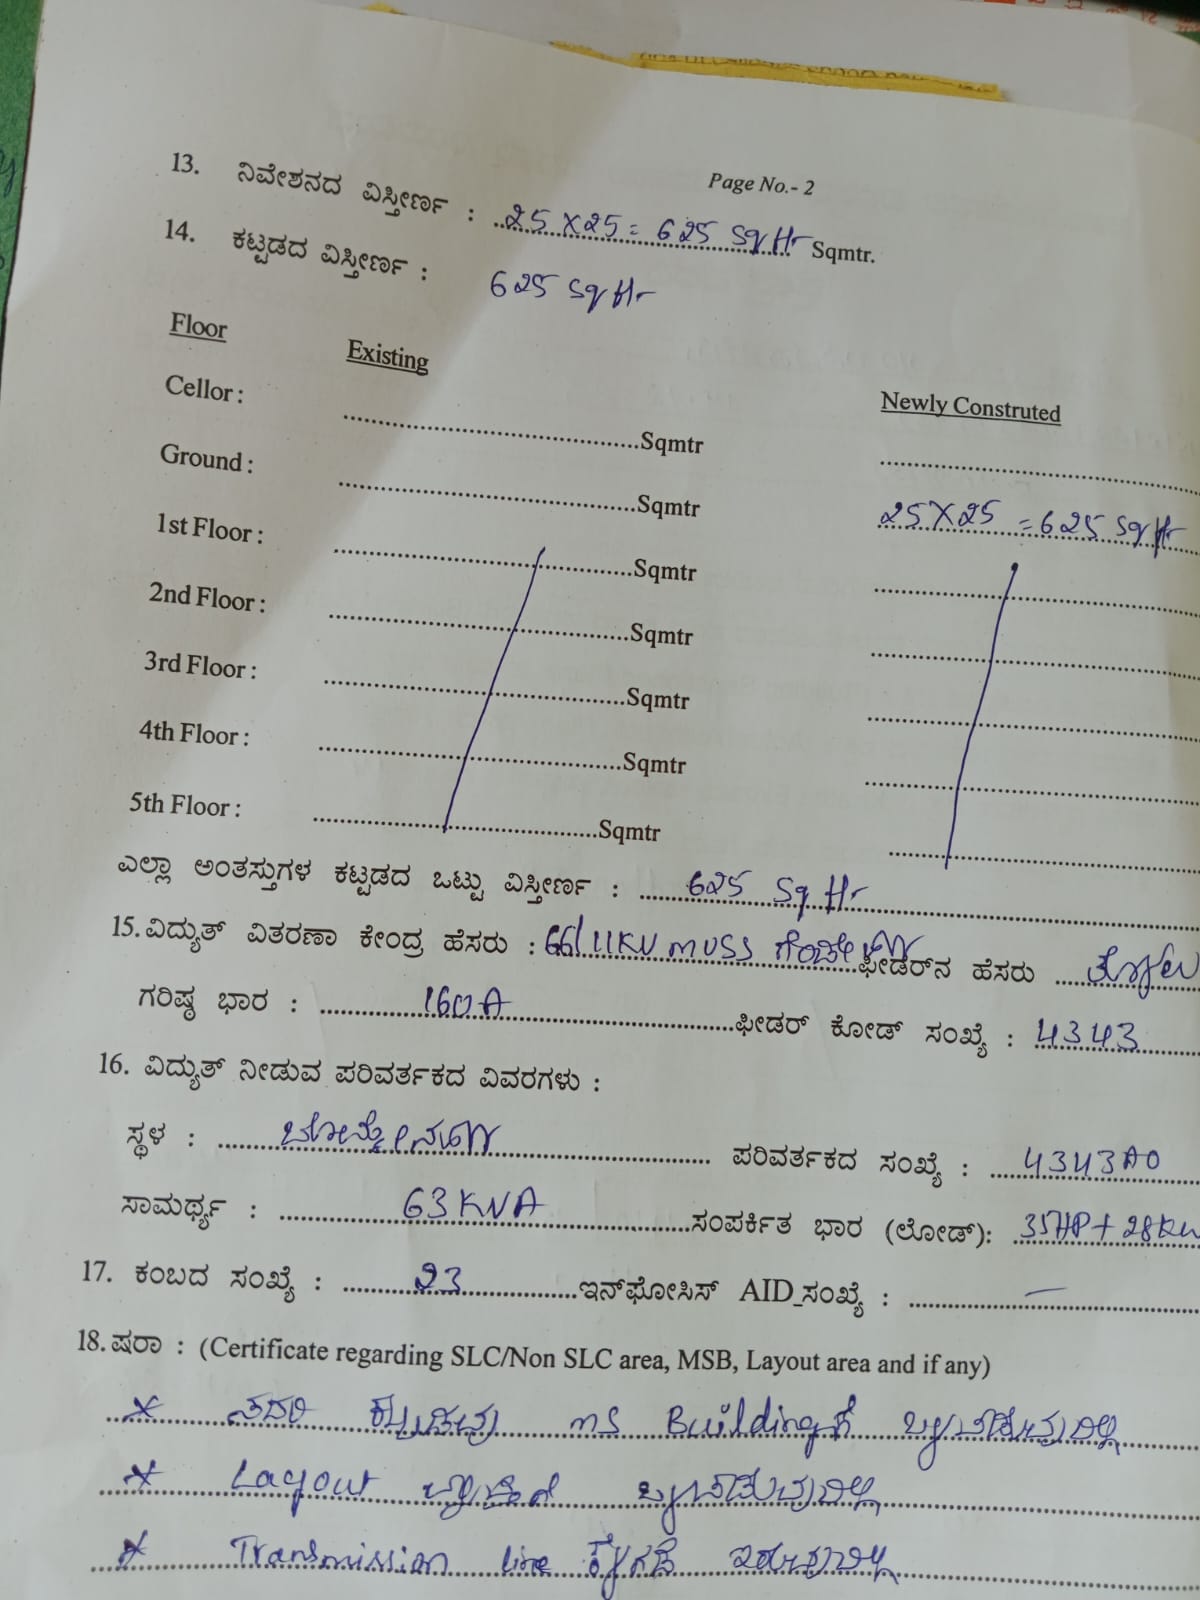 Page No.- 2
13. ನಿವೇಶನದ ವಿಸ್ತೀರ್ಣ : 25 X 25 = 625 Sq ft Sqmtr.
14. ಕಟ್ಟಡದ ವಿಸ್ತೀರ್ಣ : 625 Sq ft
Floor Existing Newly Construted
Cellor : Sqmtr
Ground : Sqmtr 25 X 25 = 625 Sq ft
1st Floor : Sqmtr
2nd Floor : Sqmtr
3rd Floor : Sqmtr
4th Floor : Sqmtr
5th Floor : Sqmtr
ಎಲ್ಲಾ ಅಂತಸ್ತುಗಳ ಕಟ್ಟಡದ ಒಟ್ಟು ವಿಸ್ತೀರ್ಣ : 625 Sq ft
15. ವಿದ್ಯುತ್ ವಿತರಣಾ ಕೇಂದ್ರ ಹೆಸರು : 66/11KV MUSS ಫೀಡರ್‌ನ ಹೆಸರು
ಗರಿಷ್ಠ ಭಾರ : 160A ಫೀಡರ್ ಕೋಡ್ ಸಂಖ್ಯೆ : 4343
16. ವಿದ್ಯುತ್ ನೀಡುವ ಪರಿವರ್ತಕದ ವಿವರಗಳು :
ಸ್ಥಳ : ಪರಿವರ್ತಕದ ಸಂಖ್ಯೆ :
ಸಾಮರ್ಥ್ಯ : 63 KVA ಸಂಪರ್ಕಿತ ಭಾರ (ಲೋಡ್): 35HP + 28KW
17. ಕಂಬದ ಸಂಖ್ಯೆ : 23 ಇನ್‌ಫೋಸಿಸ್ AID ಸಂಖ್ಯೆ : —
18. ಷರಾ : (Certificate regarding SLC/Non SLC area, MSB, Layout area and if any)
* ಸದರಿ ಕಟ್ಟಡವು MS Buildingಗೆ ಒಳಪಡುವುದಿಲ್ಲ
* Layout ವ್ಯಾಪ್ತಿಗೆ ಒಳಪಡುವುದಿಲ್ಲ
* Transmission line ಕೆಳಗಡೆ ಇರುವುದಿಲ್ಲ